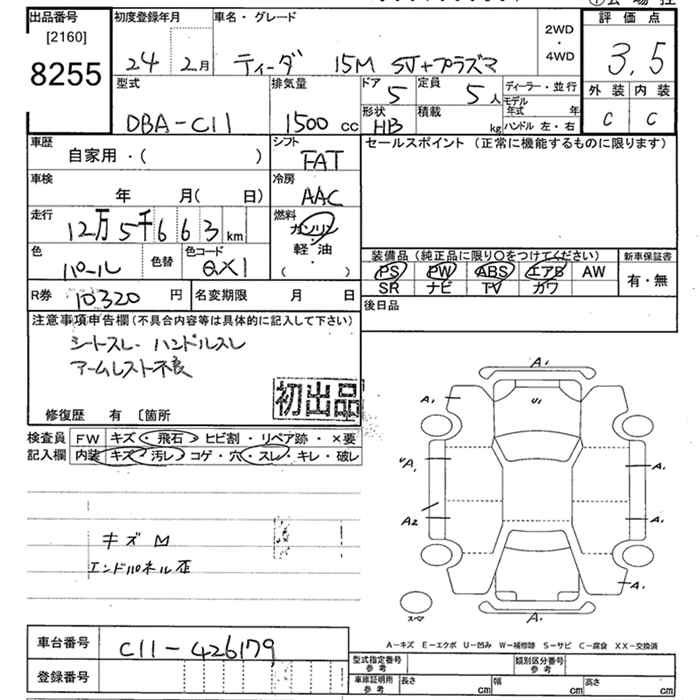 出品番号 初度登録年月 車名・グレード 2WD・4WD 評価点
[2160]
8255 24 2月 ティーダ 15M SV+プラズマ 3.5
型式 排気量 ドア 定員 ディーラー・並行 外装 内装
DBA-C11 1500cc 5 5人 モデル年式 年 C C
形状 積載 kg ハンドル 左・右
HB
車歴 シフト セールスポイント (正常に機能するものに限ります)
自家用・( ) FAT
車検 冷房
年 月( 日) AAC
走行 燃料
12万5千663km ガソリン
軽油
( ・ )
色 色替 色コード 装備品 (純正品に限り○をつけてください) 新車保証書
パール QX1 PS PW ABS エアB AW 有・無
SR ナビ TV カワ
R券 10320円 名変期限 月 日 後日品
注意事項申告欄 (不具合内容等は具体的に記入して下さい)
シートスレ・ハンドルスレ
アームレスト不良
初出品
修復歴 有 〔箇所
検査員 FW キズ・飛石・ヒビ割・リペア跡・×要
記入欄 内装 キズ・汚レ・コゲ・穴・スレ・キレ・破レ
キズ M
エンドパネル歪
A1
A1 U1
A1 A1
A2 A1
A1
スペア A1
A-キズ E-エクボ U-凹み W-補修跡 S-サビ C-腐食 XX-交換済
車台番号 C11-426179
登録番号
型式指定番号 参考 類別区分番号 参考
車庫証明用 参考 長さ cm 幅 cm 高さ cm